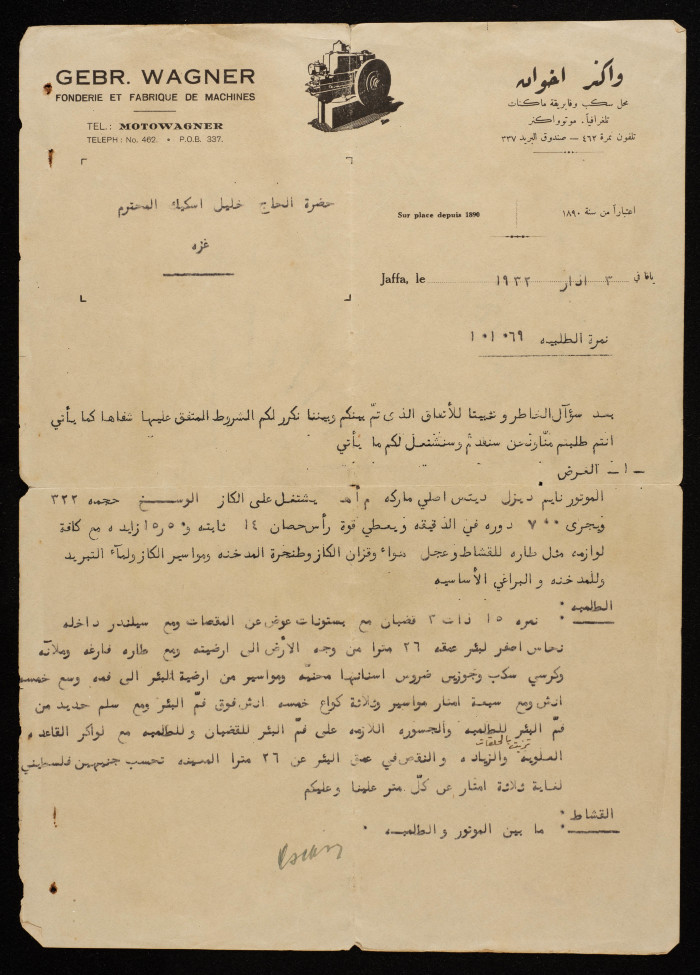 GEBR. WAGNER
FONDERIE ET FABRIQUE DE MACHINES
TEL.: MOTOWAGNER
TELEPH: No. 462. • P.O.B. 337.
واكنر اخوان
محل سكب وفابريقة ماكنات
تلغرافياً. موتوواكنر
تلفون نمرة ٤٦٢ — صندوق البريد ٣٣٧
Sur place depuis 1890
اعتباراً من سنة ١٨٩٠
حضرة الحاج خليل اسكيك المحترم
غزه
Jaffa, le ٣ اذار ١٩٣٢ يافا في
نمرة الطلبيه ١٠١٠٦٩
بعد سؤآل الخاطر و تثبيتا للأتفاق الذى تمّ بينكم وبيننا نكرر لكم الشروط المتفق عليها شفاها كما يأتي
انتم طلبتم منّا ونحن سنقدم وسنشتغل لكم ما يأتي
— ١ — الغرض
الموتور نايم ديزل ديتس اصلي ماركه م أ هـ يشتغل على الكاز الوسخ حجمه ٣٢٢
ويجرى ٧٠٠ دوره في الدقيقه ويعطي قوة رأس حصان ١٤ ثابته و ١٥٫٥ زايده مع كافة
لوازمه مثل طاره للقشاط وعجل هواء وقزان الكاز وطنجرة المدخنه ومواسير الكاز ولمآء التبريد
وللمدخنه و البراغي الأساسيه
الطلمبه : نمره ١٥ ذات ٣ قضبان مع بستونات عوض عن المقصات ومع سيلندر داخله
نحاس اصفر لبئر عمقه ٢٦ مترا من وجه الأرض الى ارضيته ومع طاره فارغه وملآنه
وكرسي سكب وجوزين ضروس اسنانها محنيّه ومواسير من ارضية البئر الى فمه وسع خمسه
انش ومع سبعة امتار مواسير وثلاثة كواع خمسه انش فوق فمّ البئر ومع سلم حديد من
فمّ البئر للطلمبه والجسوره اللازمه على فمّ البئر للقضبان و للطلمبه مع لواكر القاعده
العلويه والزياده و النقص في عمق البئر عن ٢٦ مترا المعينه تحسب جنيهين فلسطيني
لغاية ثلاثة امتار عن كلّ متر علينا وعليكم
القشاط : ما بين الموتور و الطلمبه .